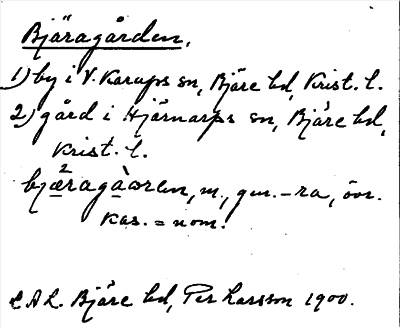 Bjäragården.
1) by i V. Karups sn, Bjäre hd, Krist. l.
2) gård i Hjärnarps sn, Bjäre hd,
Krist. l.
bjæ²ragàɷren, m., gen. -ra, övr.
kas. = nom.
L.A.L. Bjäre hd, Per Larsson 1900.